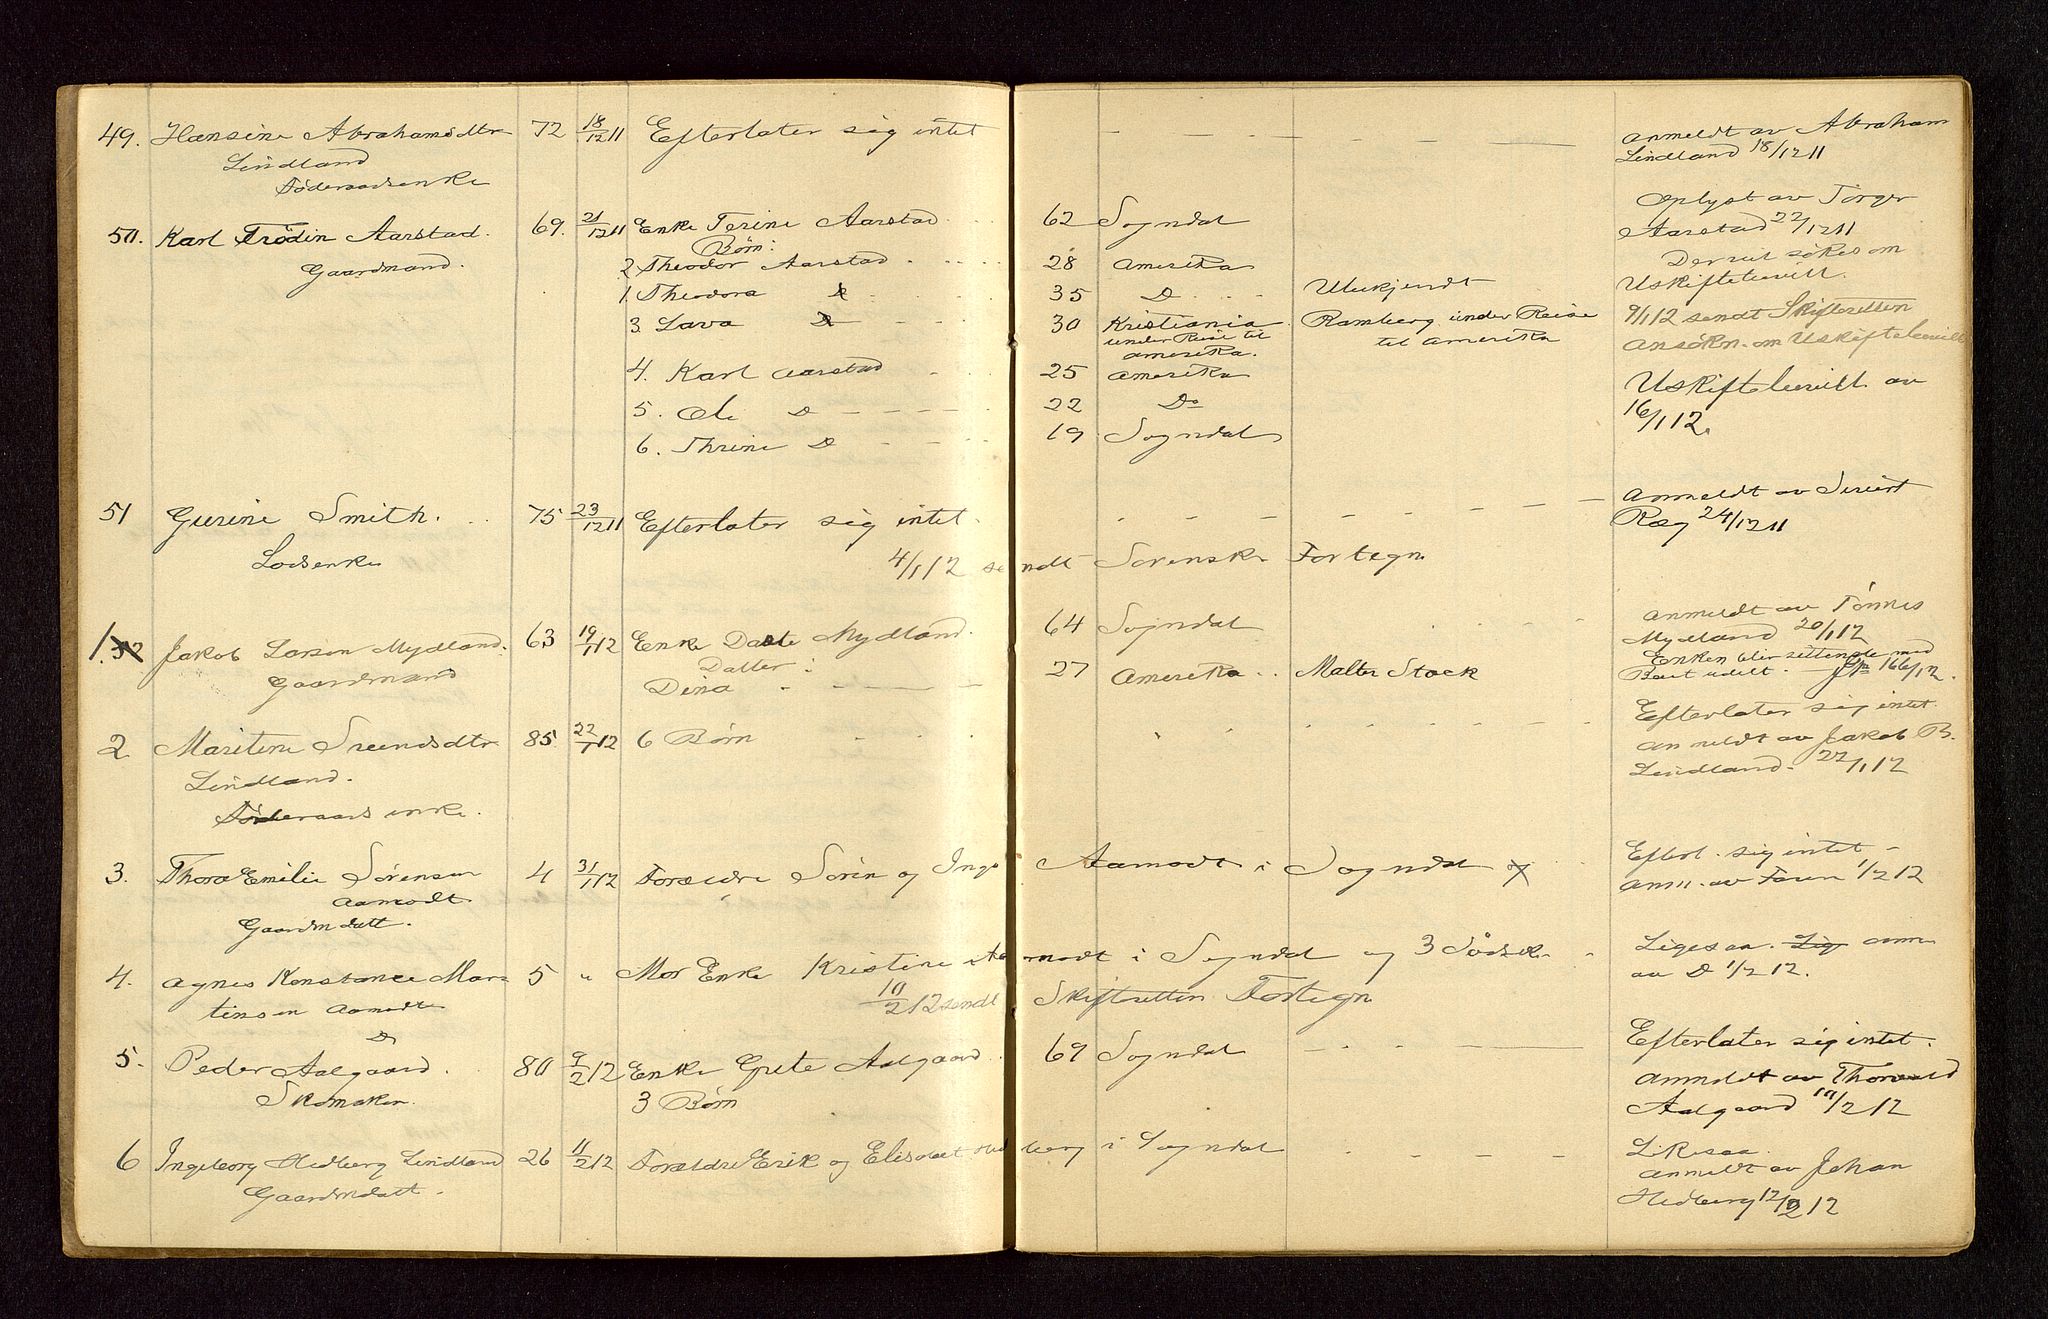 49. Hansine Abrahamsdtr 72 18/12 11 Efterlater sig intet - - - - - anmeldt av Abraham
Lindland Lindland 18/12 11
Föderaadsenke
50. Karl Frödin Aarstad. 69. 21/12 11 Enke Terine Aarstad 62 Sogndal Oplyst av Törger
Gaardmand. Børn: Aarstad 22/12 11
2 Theodor Aarstad 28 Amerika Derved søkes om
1. Theodora D 35 D Ubekjendt Uskiftebevill.
3. Lava D 30 Kristiania Ramberg under Reise 9/1 12 sendt Skifteretten
under Reise til Amerika. til Amerika Ansökn. om Uskiftebevill
4. Karl Aarstad 25 Amerika Uskiftebevill av
5. Ole D 22 Do 16/1 12.
6. Thrine D 19 Sogndal
51 Gurine Smith. 75 23/12 11 Efterlater sig intet. - - - - - Anmeldt av Sivert
Lodsenke Ræg 24/12 11
4/1 12 sendt Sorensk. Fortegn
1. 52 Jakob Larsen Mydland. 63 19/1 12 Enke Dorte Mydland. 64 Sogndal anmeldt av Tönnes
Gaardmand Datter: Mydland 20/1 12
Dina 27 Amerika Malter Stock Enken blir sittende med
Boet udelt. 166/12.
2 Maritene Svendsdtr 85. 22/1 12 6 Børn Efterlater sig intet.
Lindland. anmeldt av Jakob B.
Föderaads enke. Lindland. 22/1 12
3. Thora Emilie Sörensen 4 31/1 12 Forældre Sörin og Inga Aamodt i Sogndal Efterl. sig intet -
Aamodt anm. av Faren 1/2 12
Gaardmdatt.
4. Agnes Konstance Mar- 5 " Mor Enke Kristine Aamodt i Sogndal og 3 Södsk. Ligesaa. Lig anm
tinsen Aamodt av D 1/2 12.
D 10/2 12 sendt Skifteretten Fortegn
5. Peder Aalgaard. 80 9/2 12 Enke Grete Aalgaard 69 Sogndal Efterlater sig intet.
Skomaker. 3 Børn anmeldt av Thorvald
Aalgaard 10/2 12
6 Ingeborg Hedberg Lindland 26 11/2 12 Forældre Erik og Elisabet Hedberg i Sogndal Likesaa.
Gaardmdatt. anmeldt av Johan
Hedberg 12/2 12